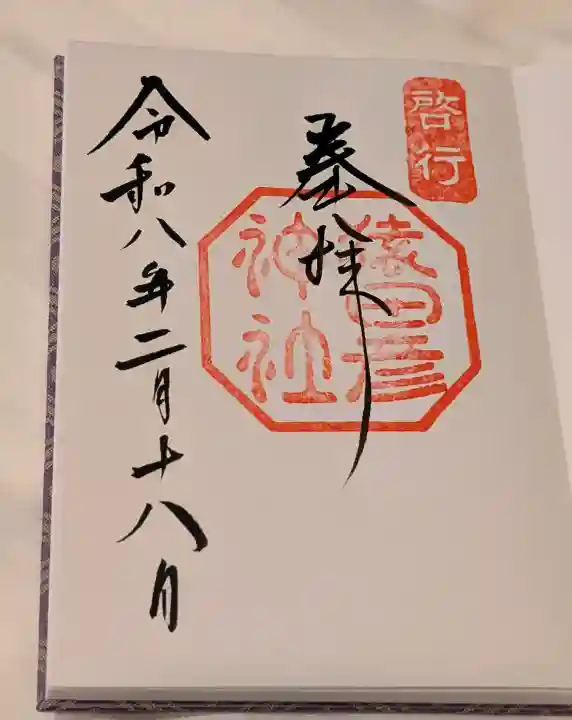 啓行
奉拝
猿田彦
神社
令和八年二月十八日